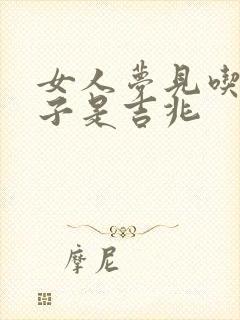 女人夢見喫
子是吉兆
摩尼